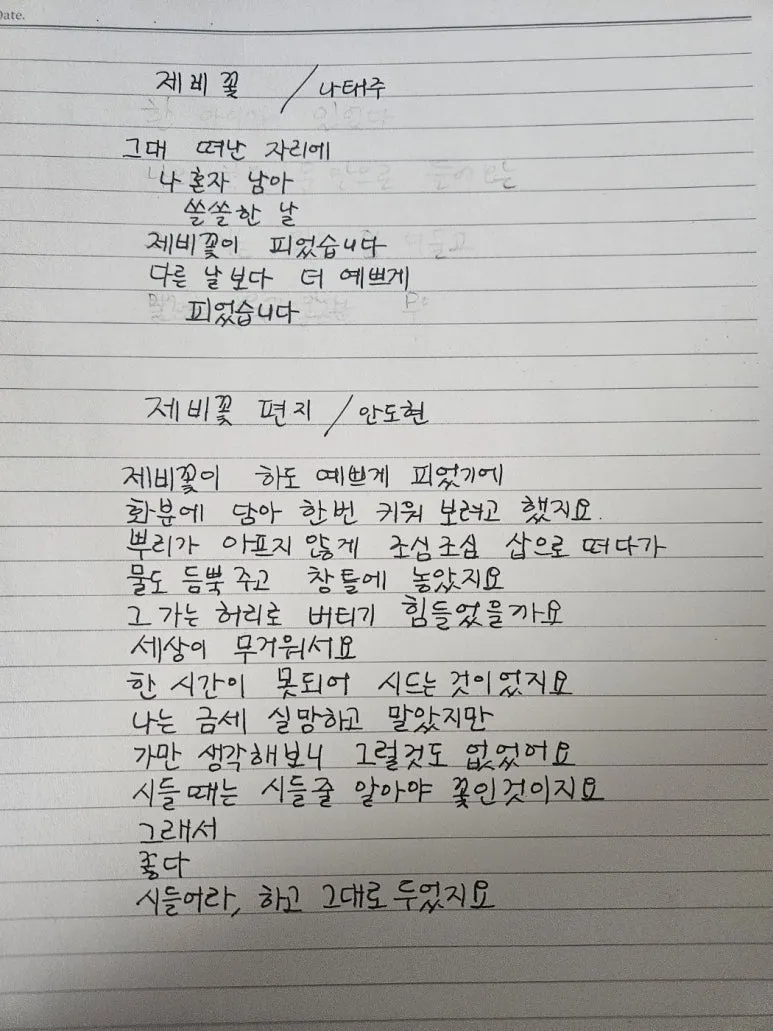 Date.
제비꽃 / 나태주
그대 떠난 자리에
나 혼자 남아
쓸쓸한 날
제비꽃이 피었습니다
다른 날보다 더 예쁘게
피었습니다
제비꽃 편지 / 안도현
제비꽃이 하도 예쁘게 피었기에
화분에 담아 한번 키워 보려고 했지요.
뿌리가 아프지 않게 조심조심 삽으로 떠다가
물도 듬뿍 주고 창틀에 놓았지요
그 가는 허리로 버티기 힘들었을까요
세상이 무거워서요
한 시간이 못되어 시드는 것이었지요
나는 금세 실망하고 말았지만
가만 생각해보니 그럴것도 없었어요
시들 때는 시들줄 알아야 꽃인것이지요
그래서
좋다
시들어라, 하고 그대로 두었지요